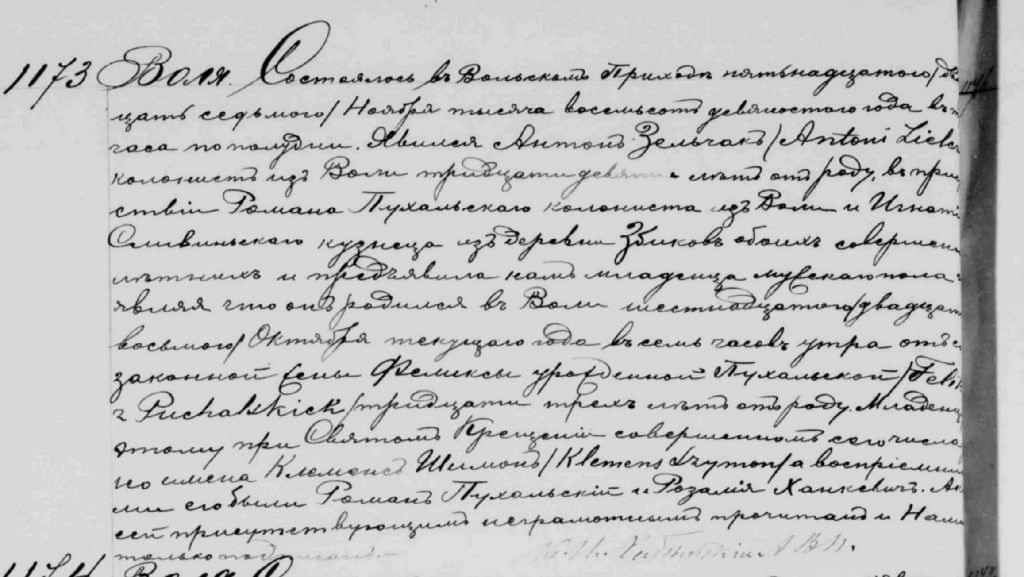 1173 Воля. Состоялось въ Вольскомъ Приходѣ пятьнадцатого /два
цать седьмого/ Ноября тысяча восемьсотъ девяностого года въ
часа пополудни. Явился Антонъ Зельчакъ /Antoni
колонистъ изъ Воли тридцати девяти лѣтъ отъ роду, въ прису
ствіи Романа Пухальскаго колониста изъ Воли и Игнатія
Сливиньскаго кузнеца изъ деревни обоихъ совершенно
лѣтнихъ и предъявилъ намъ младенца мужскаго пола
являя что онъ родился въ Воли шестнадцатого /двадцать
восьмого/ Октября текущаго года въ семь часовъ утра отъ
законной жены Феликсы урожденной Пухальской /
z Puchalskich/ тридцати трехъ лѣтъ отъ роду. Младенцу
этому при Святомъ Крещеніи совершенномъ сего числа
но имена Клеменсъ Шимонъ /Klemens Szymon/ а воспріемни
ми его были Романъ Пухальскій и Розалія Ханкевичъ. Актъ
сей присутствующимъ неграмотнымъ прочитанъ и Нами
только подписанъ.
1174 Воля